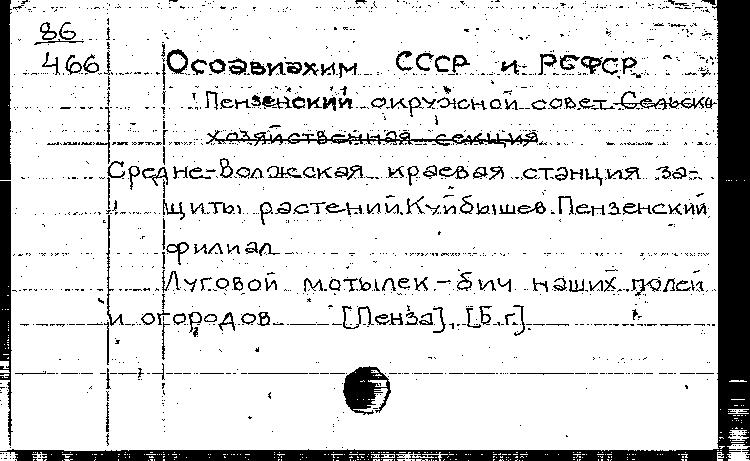 86
466
Осоавиахим СССР и РСФСР
Пензенский окружной совет. Сельско
хозяйственная секция
Средне-Волжская краевая станция за-
щиты растений. Куйбышев. Пензенский
филиал
Луговой мотылек - бич наших полей
и огородов [Пенза], [Б.г.]